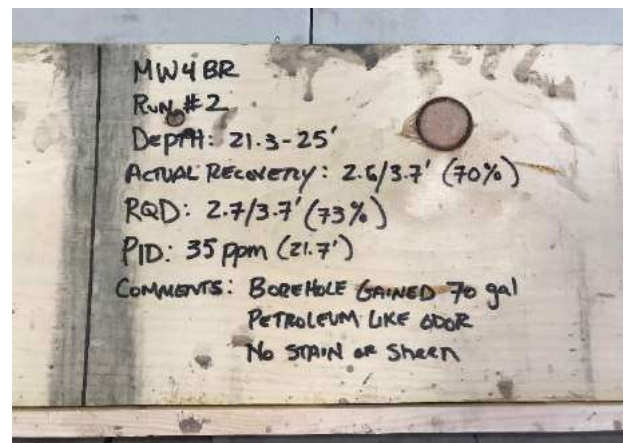 MW4BR
RUN #2
DEPTH: 21.3-25'
ACTUAL RECOVERY: 2.6/3.7' (70%)
RQD: 2.7/3.7' (73%)
PID: 35 ppm (21.7')
COMMENTS: BOREHOLE GAINED 70 gal
PETROLEUM LIKE ODOR
No STAIN OR Sheen